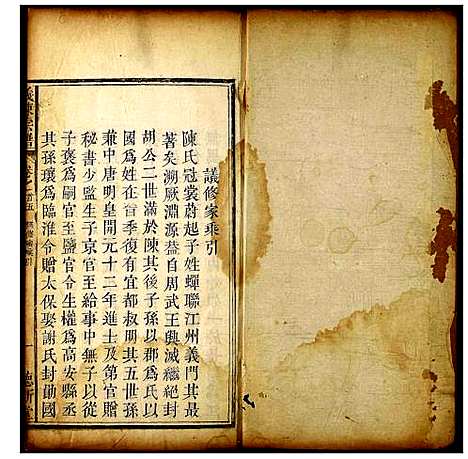 議修家乘引
陳氏冠裳蔚起子姓蟬聯江州義門其最
著矣溯厥淵源益自周武王興滅繼絕封
胡公二世滿於陳其後子孫以郡爲氏以
國爲姓在晉季復有宜都叔明其五世孫
兼中唐明皇開元十二年進士及第官贈
秘書少監生子京官至給事中無子以從
子褒爲嗣官至鹽官令生權爲高安縣丞
其孫瓌爲臨淮令贈太保娶謝氏封勛國